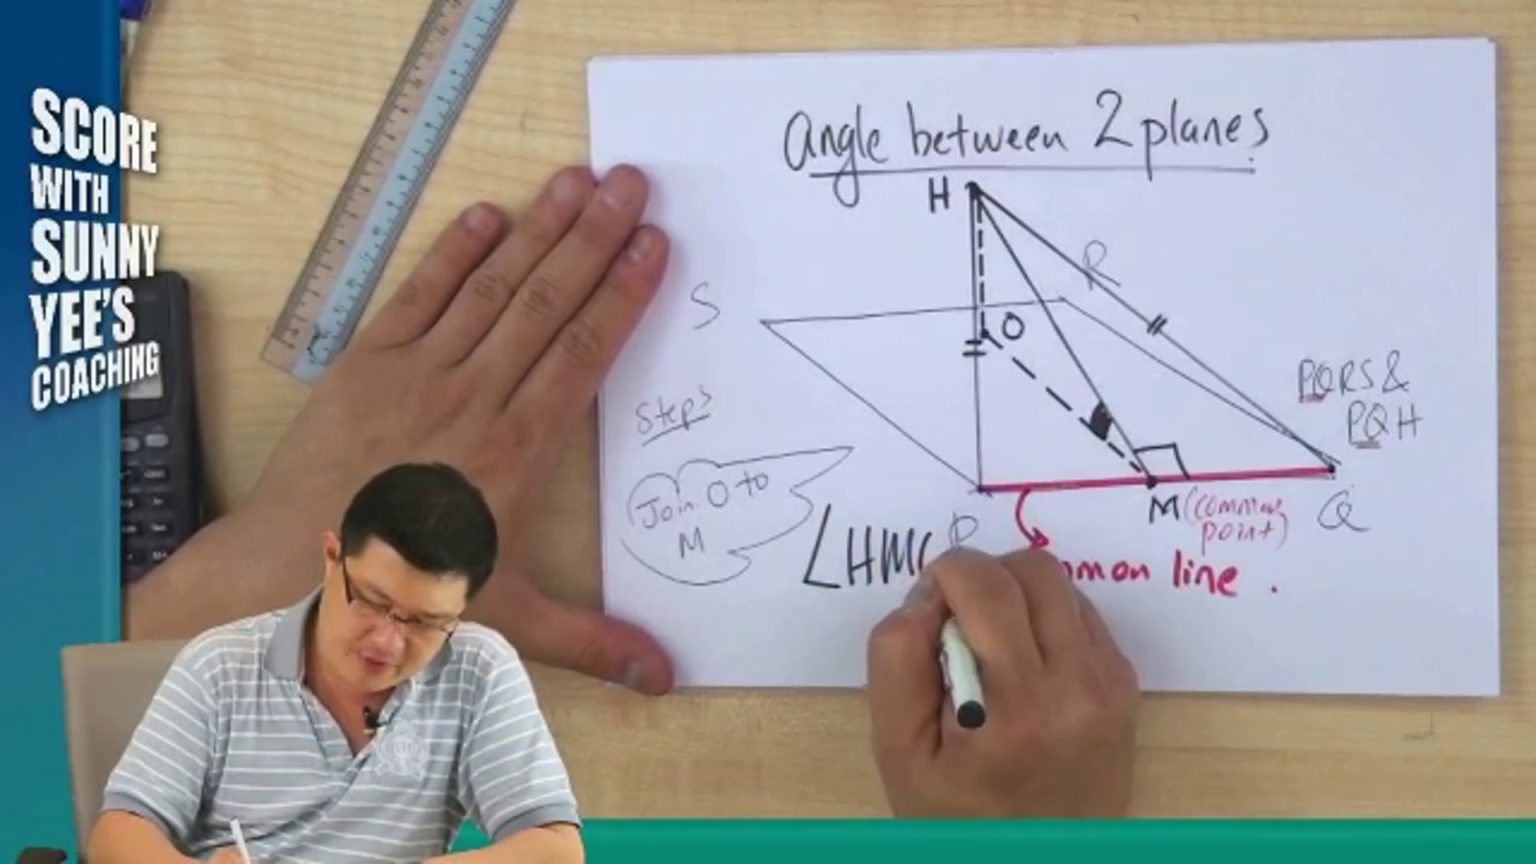 SCORE
WITH
SUNNY
YEE'S
COACHING
angle between 2 planes
H
R
S
O
PQRS &
PQH
Steps
Join O to
M
P
M (common
point)
Q
∠HM
common line.